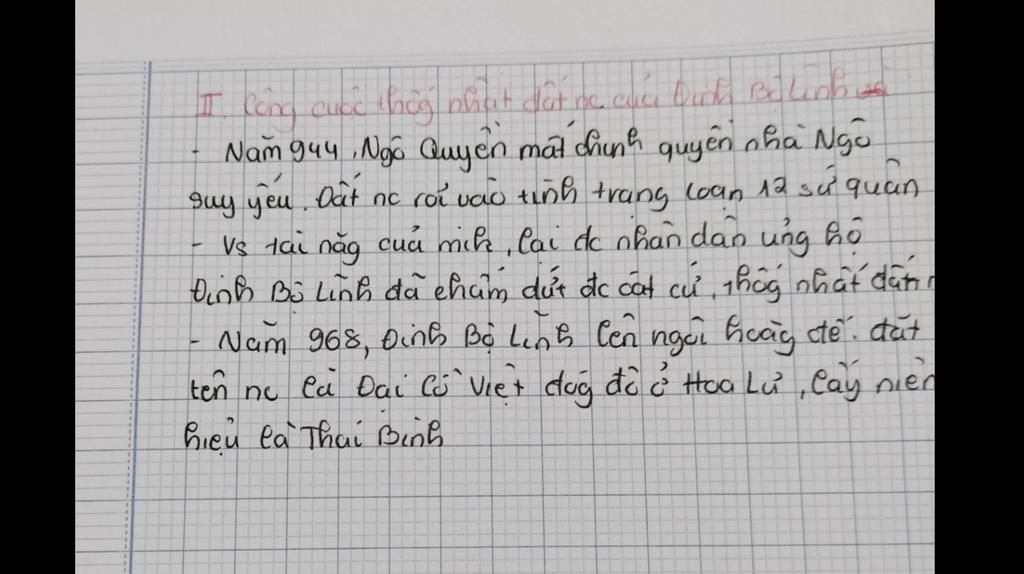 II. Công cuộc thốg nhất đất nc của Đinh Bộ Lĩnh
- Năm 944, Ngô Quyền mất chính quyền nhà Ngô
suy yếu. Đất nc rơi vào tình trạng loạn 12 sứ quân
- Vs tài năg của mìh, lại đc nhân dân ủng hộ
Đinh Bộ Lĩnh đã chấm dứt đc cát cứ, thốg nhất đất n
- Năm 968, Đinh Bộ Lĩnh lên ngôi hoàg đế. đặt
tên nc là Đại Cồ Việt đóg đô ở Hoa Lư, lấy niên
hiệu là Thái Bình